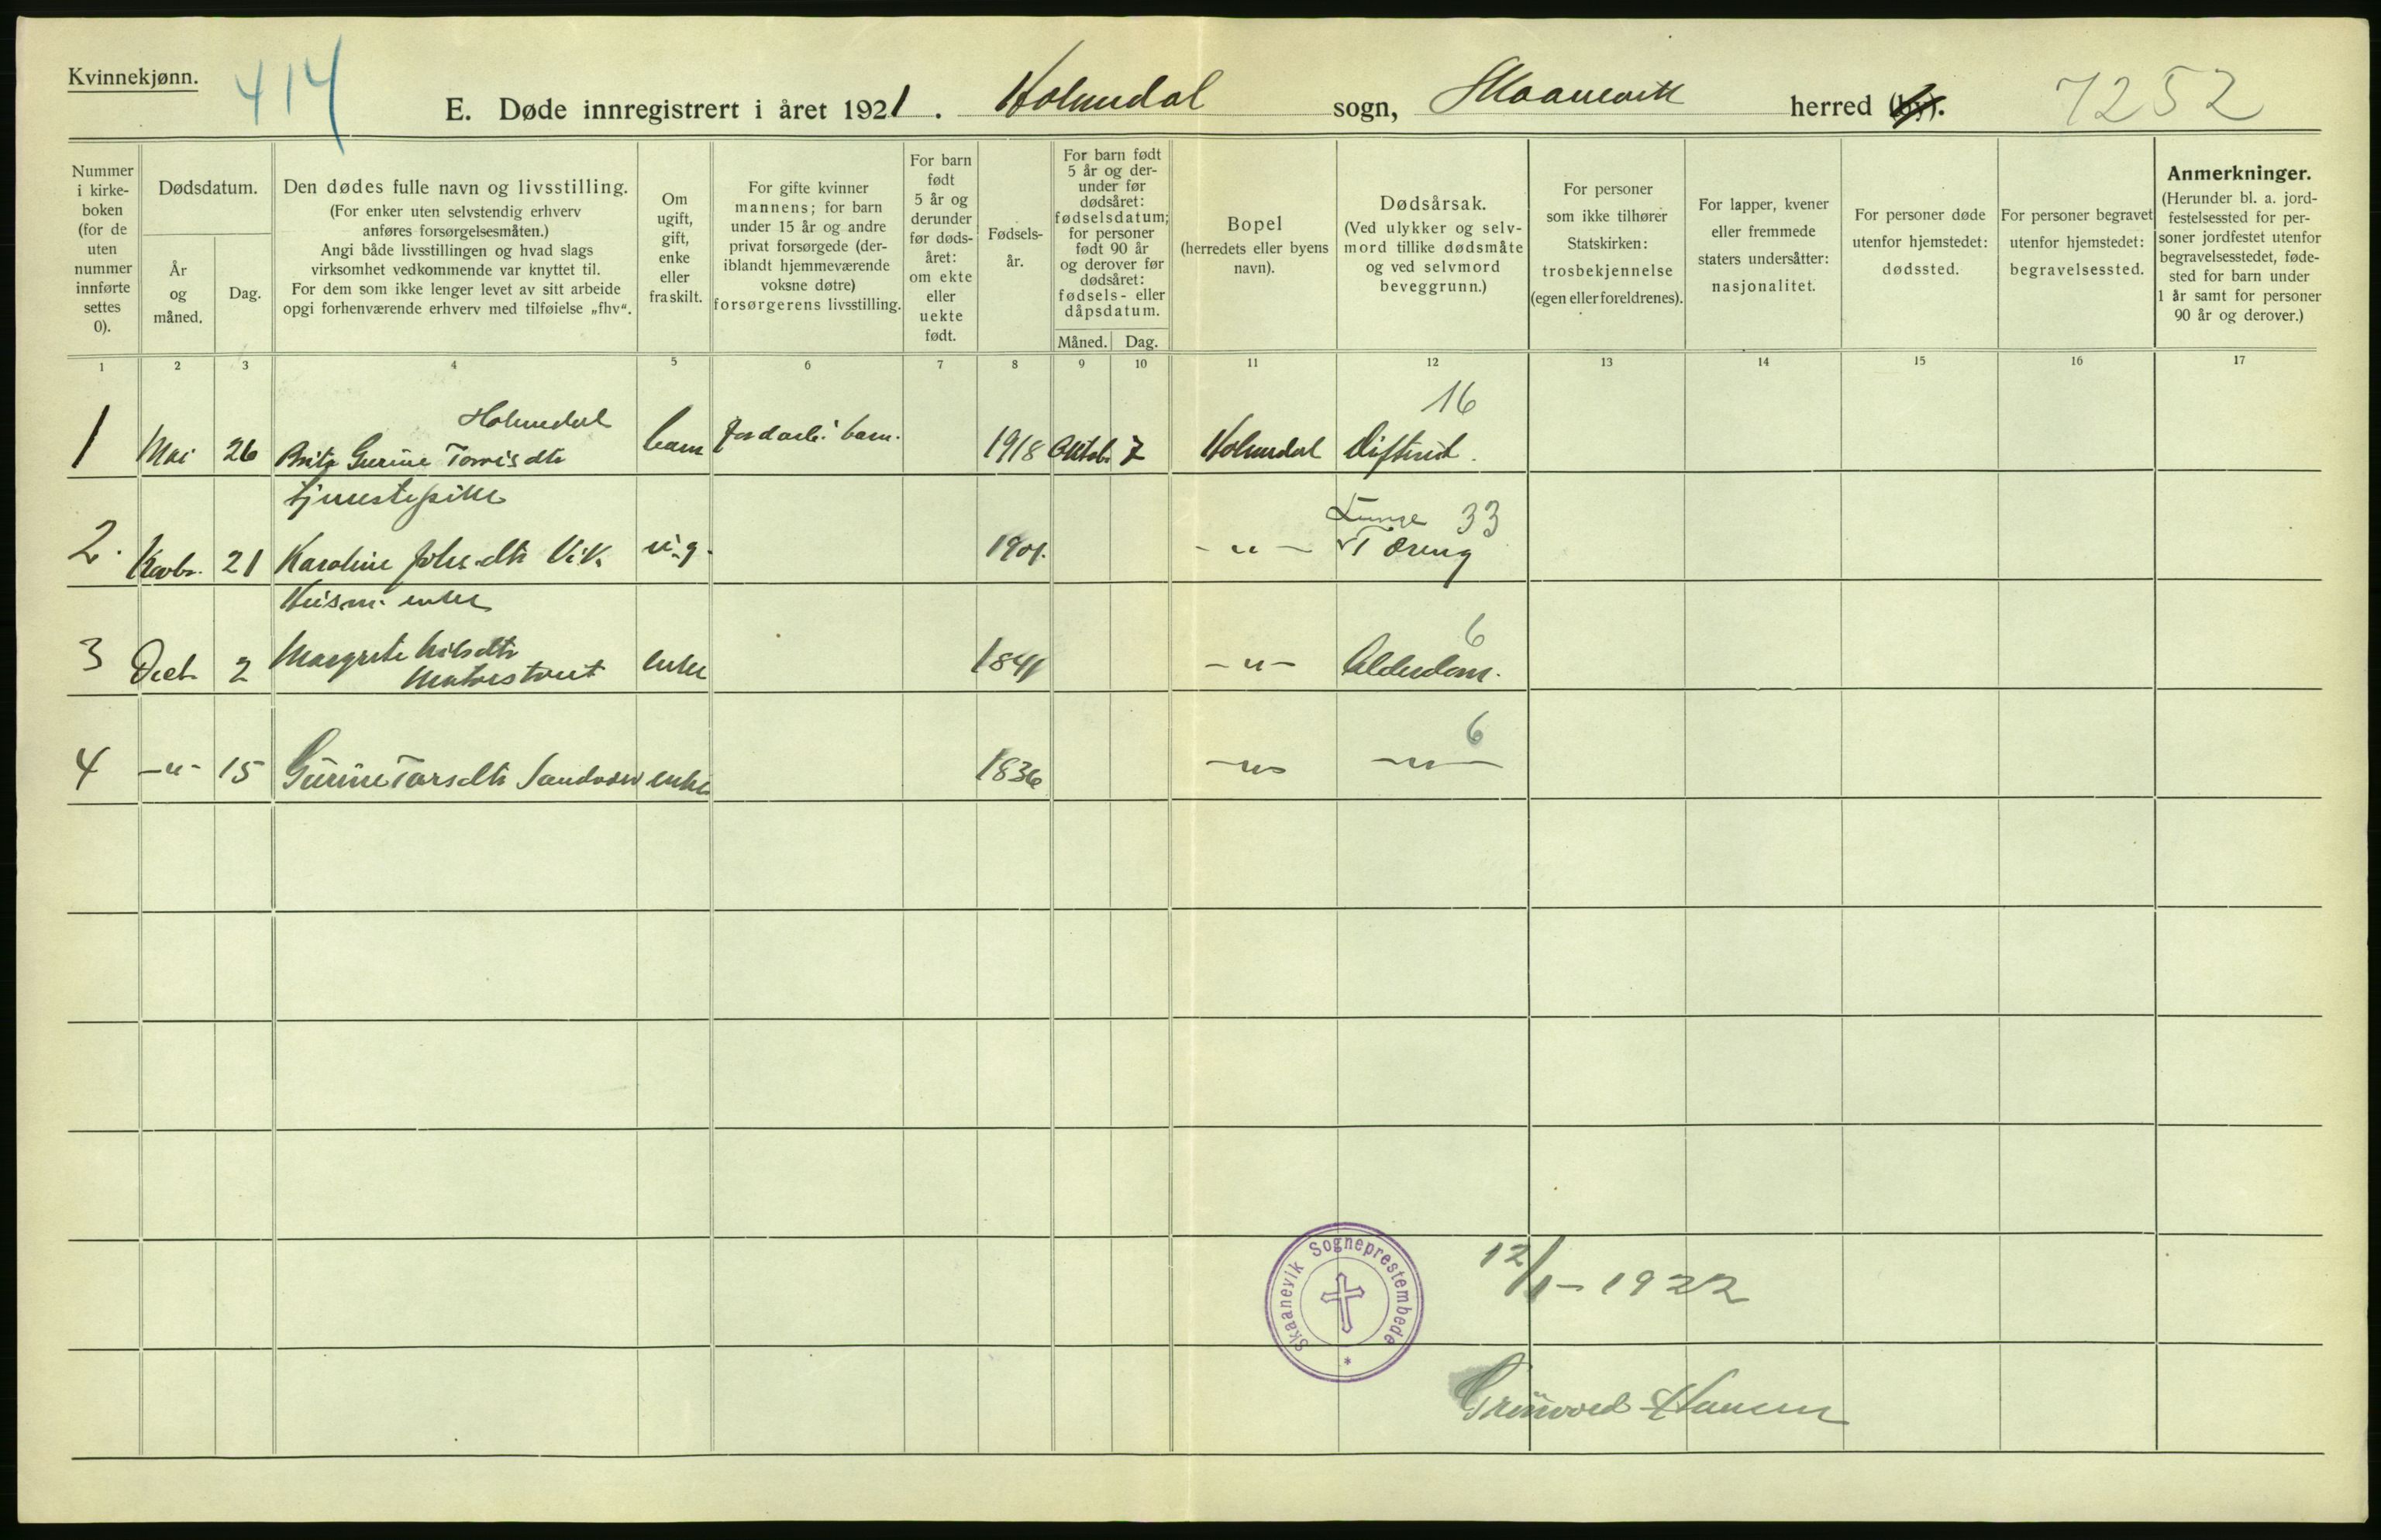 Kvinnekjønn.
414
E. Døde innregistrert i året 1921. Holmedal sogn, Skaanevik herred (by).
7252
Nummer i kirke-boken (for de uten nummer innførte settes 0).
Dødsdatum.
År og måned.
Dag.
Den dødes fulle navn og livsstilling.
(For enker uten selvstendig erhverv anføres forsørgelsesmåten.)
Angi både livsstillingen og hvad slags virksomhet vedkommende var knyttet til.
For dem som ikke lenger levet av sitt arbeide opgi forhenværende erhverv med tilføielse „fhv“.
Om ugift, gift, enke eller fraskilt.
For gifte kvinner mannens; for barn under 15 år og andre privat forsørgede (der-iblandt hjemmeværende voksne døtre) forsørgerens livsstilling.
For barn født 5 år og derunder før døds-året: om ekte eller uekte født.
Fødsels-år.
For barn født 5 år og der-under før dødsåret: fødselsdatum; for personer født 90 år og derover før dødsåret: fødsels- eller dåpsdatum.
Måned.
Dag.
Bopel (herredets eller byens navn).
Dødsårsak.
(Ved ulykker og selv-mord tillike dødsmåte og ved selvmord beveggrunn.)
For personer som ikke tilhører Statskirken: trosbekjennelse (egen eller foreldrenes).
For lapper, kvener eller fremmede staters undersåtter: nasjonalitet.
For personer døde utenfor hjemstedet: dødssted.
For personer begravet utenfor hjemstedet: begravelsessted.
Anmerkninger.
(Herunder bl. a. jord-festelsessted for per-soner jordfestet utenfor begravelsesstedet, føde-sted for barn under 1 år samt for personer 90 år og derover.)
1 2 3 4 5 6 7 8 9 10 11 12 13 14 15 16 17
Holmedal 16
1 Mai 26 Brita Gurine Torrisdtr barn barn. 1918 Oktob. 7 Holmedal Difterit.
tjenestepike Lunge 33
2. Novbr. 21 Karoline Johs.dtr Vik ug. 1901. -"- Tæring
Husm. enke 6
3 Decb. 2 Margrete Nilsdtr enke 1841 -"- Alderdom.
6
4 -"- 15 Gurine Larsdtr enke 1836 -"- -"-
Skaanevik Sogneprestembede
12/1-1922
Grönvold Hansen